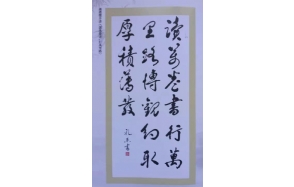 讀萬卷書行萬
里路博觀約取
厚積薄發